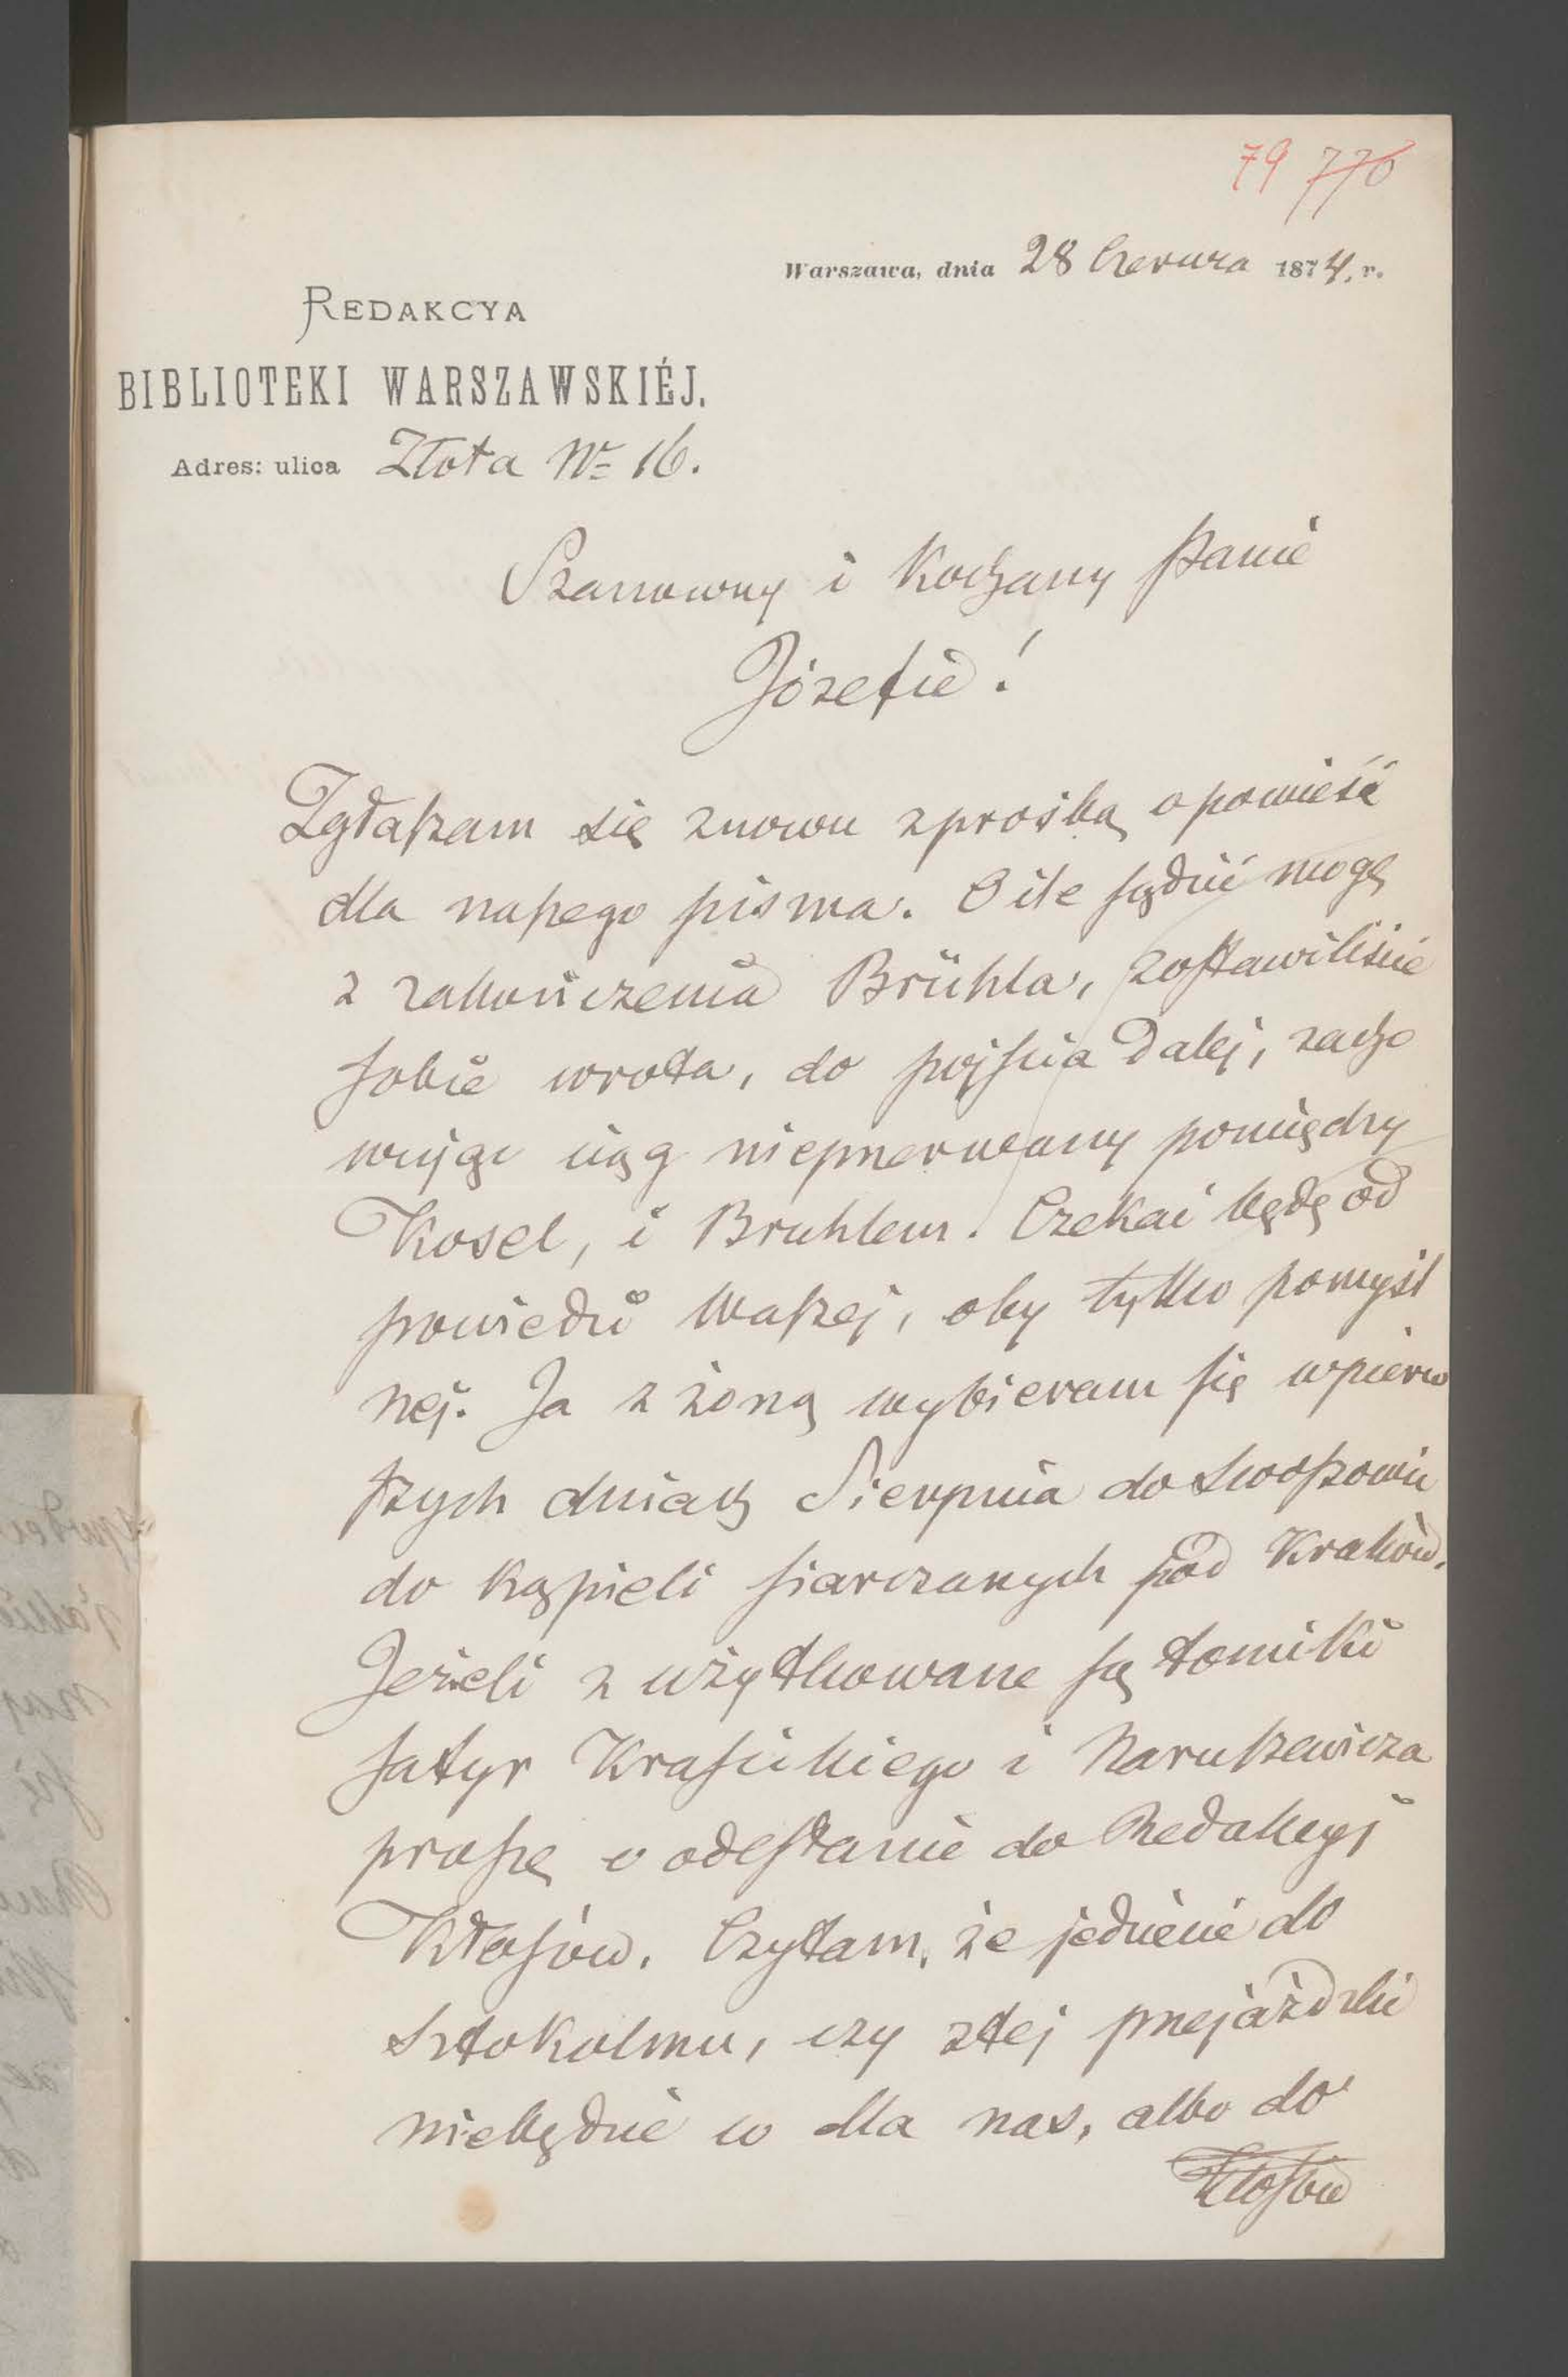 79 776
Warszawa, dnia 28 Czerwca 1874. r.
REDAKCYA
BIBLIOTEKI WARSZAWSKIÉJ.
Adres: ulica Złota Nr 16.
Szanowny i Kochany Panie
Józefie!
Zgłaszam się znowu z prośbą o powieść
dla naszego pisma. O ile sądzić mogę
z zakończenia Brühla, zostawiliście
sobie wrota, do pójścia dalej, zacho
wując ciąg nieprzerwany pomiędzy
Kosel, i Bruhlem. Czekać będę od
powiedzi Waszej, oby tylko pomyśl
nej. Ja z żoną wybieram się w pierw
szych dniach Sierpnia do Swoszowic
do kąpieli siarczanych pod Kraków.
Jeżeli zużytkowane są tomiki
satyr Krasickiego i Naruszewicza
proszę o odesłanie do Redakcyi
Kłosów. Czytam, że jedziecie do
Sztokolmu, czy z tej przejażdżki
niebędzie co dla nas, albo do
Kłosów